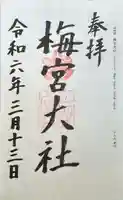 奉拝
梅宮大社
令和六年三月十三日